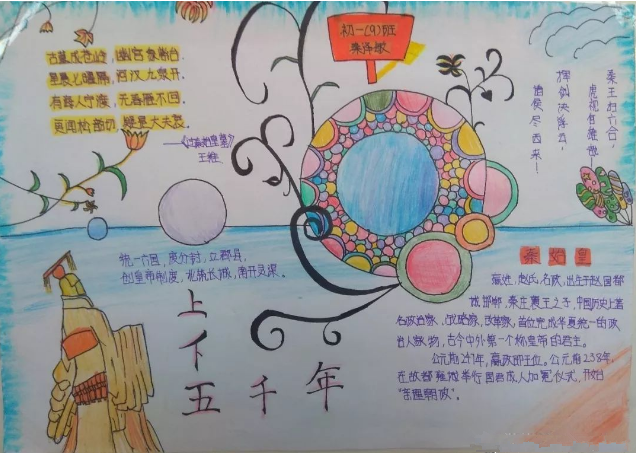 古墓成苍岭，幽宫象紫台。
星辰七曜隔，河汉九泉开。
有海人宁渡，无春雁不回。
更闻松韵切，疑是大夫哀。
——《过秦始皇墓》
王维
初一(9)班
秦王扫六合，
虎视何雄哉！
挥剑决浮云，
诸侯尽西来！
统一六国，废分封，立郡县，
创皇帝制度，北筑长城，凿开灵渠。
上下五千年
秦始皇
嬴姓，赵氏，名政，出生于赵国都
城邯郸，秦庄襄王之子，中国历史上著
名政治家、战略家、改革家，首位完成华夏统一的政
治人物，古今中外第一个称皇帝的君主。
公元前247年，嬴政即王位。公元前238年，
在故都雍城举行国君成人加冕仪式，开始
“亲理朝政”。